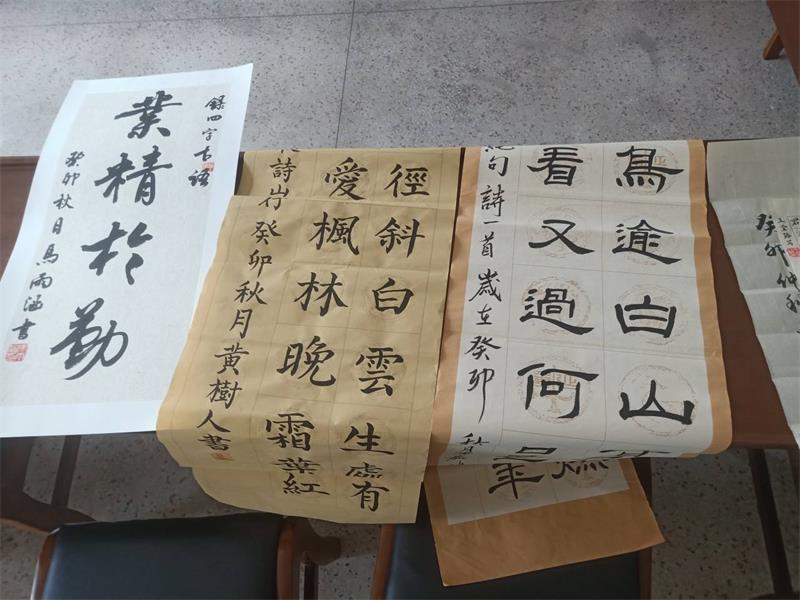 錄四字古語
業精於勤
癸卯秋月馬雨涵書
徑斜白雲生處有
愛楓林晚霜葉紅
詩山行癸卯秋月黃樹人書
鳥逾白山
看又過何
絕句詩一首歲在癸卯秋月
燃
年
癸卯仲秋